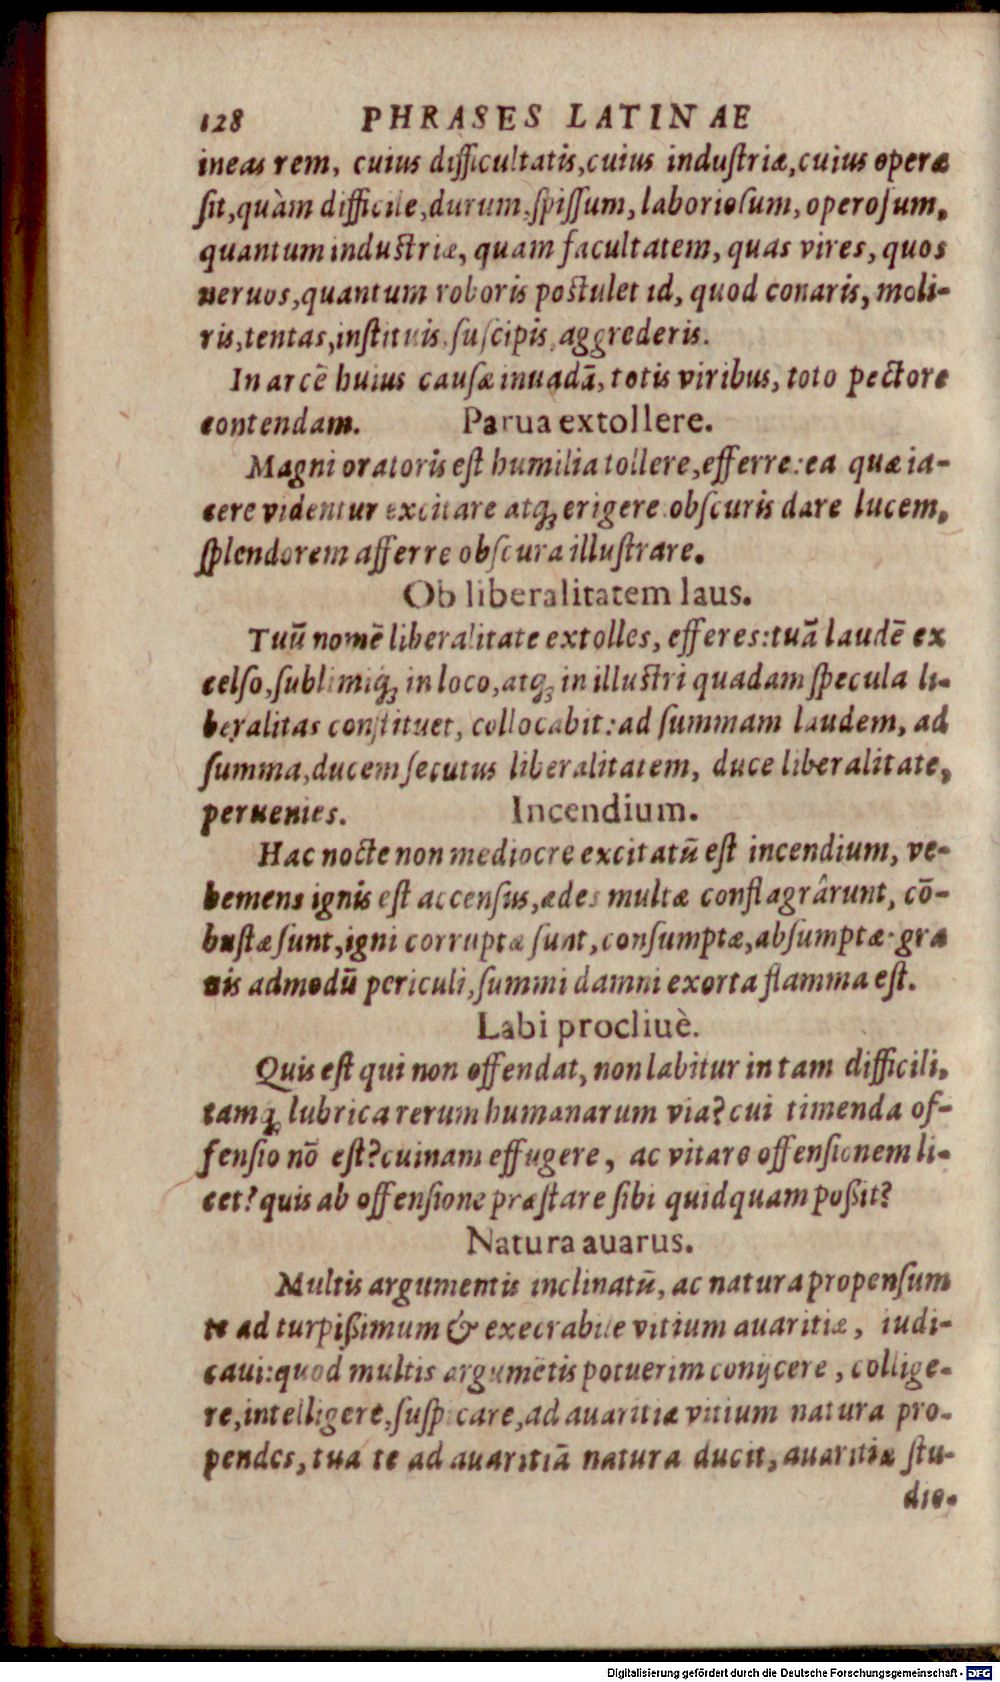 128 PHRASES LATINAE
ineas rem, cuius difficultatis, cuius industriæ, cuius operæ
sit, quàm difficile, durum, spissum, laboriosum, operosum,
quantum industriæ, quam facultatem, quas vires, quos
neruos, quantum roboris postulet id, quod conaris, moli-
ris, tentas, instituis, suscipis, aggrederis.
In arcē huius causæ inuadā, totis viribus, toto pectore
contendam. Parua extollere.
Magni oratoris est humilia tollere, efferre: ea quæ ia-
cere videntur excitare atq; erigere obscuris dare lucem,
splendorem afferre obscura illustrare.
Ob liberalitatem laus.
Tuū nomē liberalitate extolles, efferes: tuā laudē ex
celso, sublimiq́; in loco, atq; in illustri quadam specula li-
beralitas constituet, collocabit: ad summam laudem, ad
summa, ducem secutus liberalitatem, duce liberalitate,
peruenies. Incendium.
Hac nocte non mediocre excitatū est incendium, ve-
hemens ignis est accensus, ædes multæ conflagrârunt, cō-
bustæ sunt, igni corruptæ sunt, consumptæ, absumptæ: gra
uis admodū periculi, summi damni exorta flamma est.
Labi procliuè.
Quis est qui non offendat, non labitur in tam difficili,
tamq; lubrica rerum humanarum via? cui timenda of-
fensio nō est? cuinam effugere, ac vitare offensionem li-
cet? quis ab offensione præstare sibi quidquam poßit?
Natura auarus.
Multis argumentis inclinatū, ac natura propensum
te ad turpißimum & execrabile vitium auaritiæ, iudi-
caui: quod multis argumētis potuerim conijcere, collige-
re, intelligere, suspicare, ad auaritiæ vitium natura pro-
pendes, tua te ad auaritiā natura ducit, auaritiæ stu-
dio-
Digitalisierung gefördert durch die Deutsche Forschungsgemeinschaft - DFG